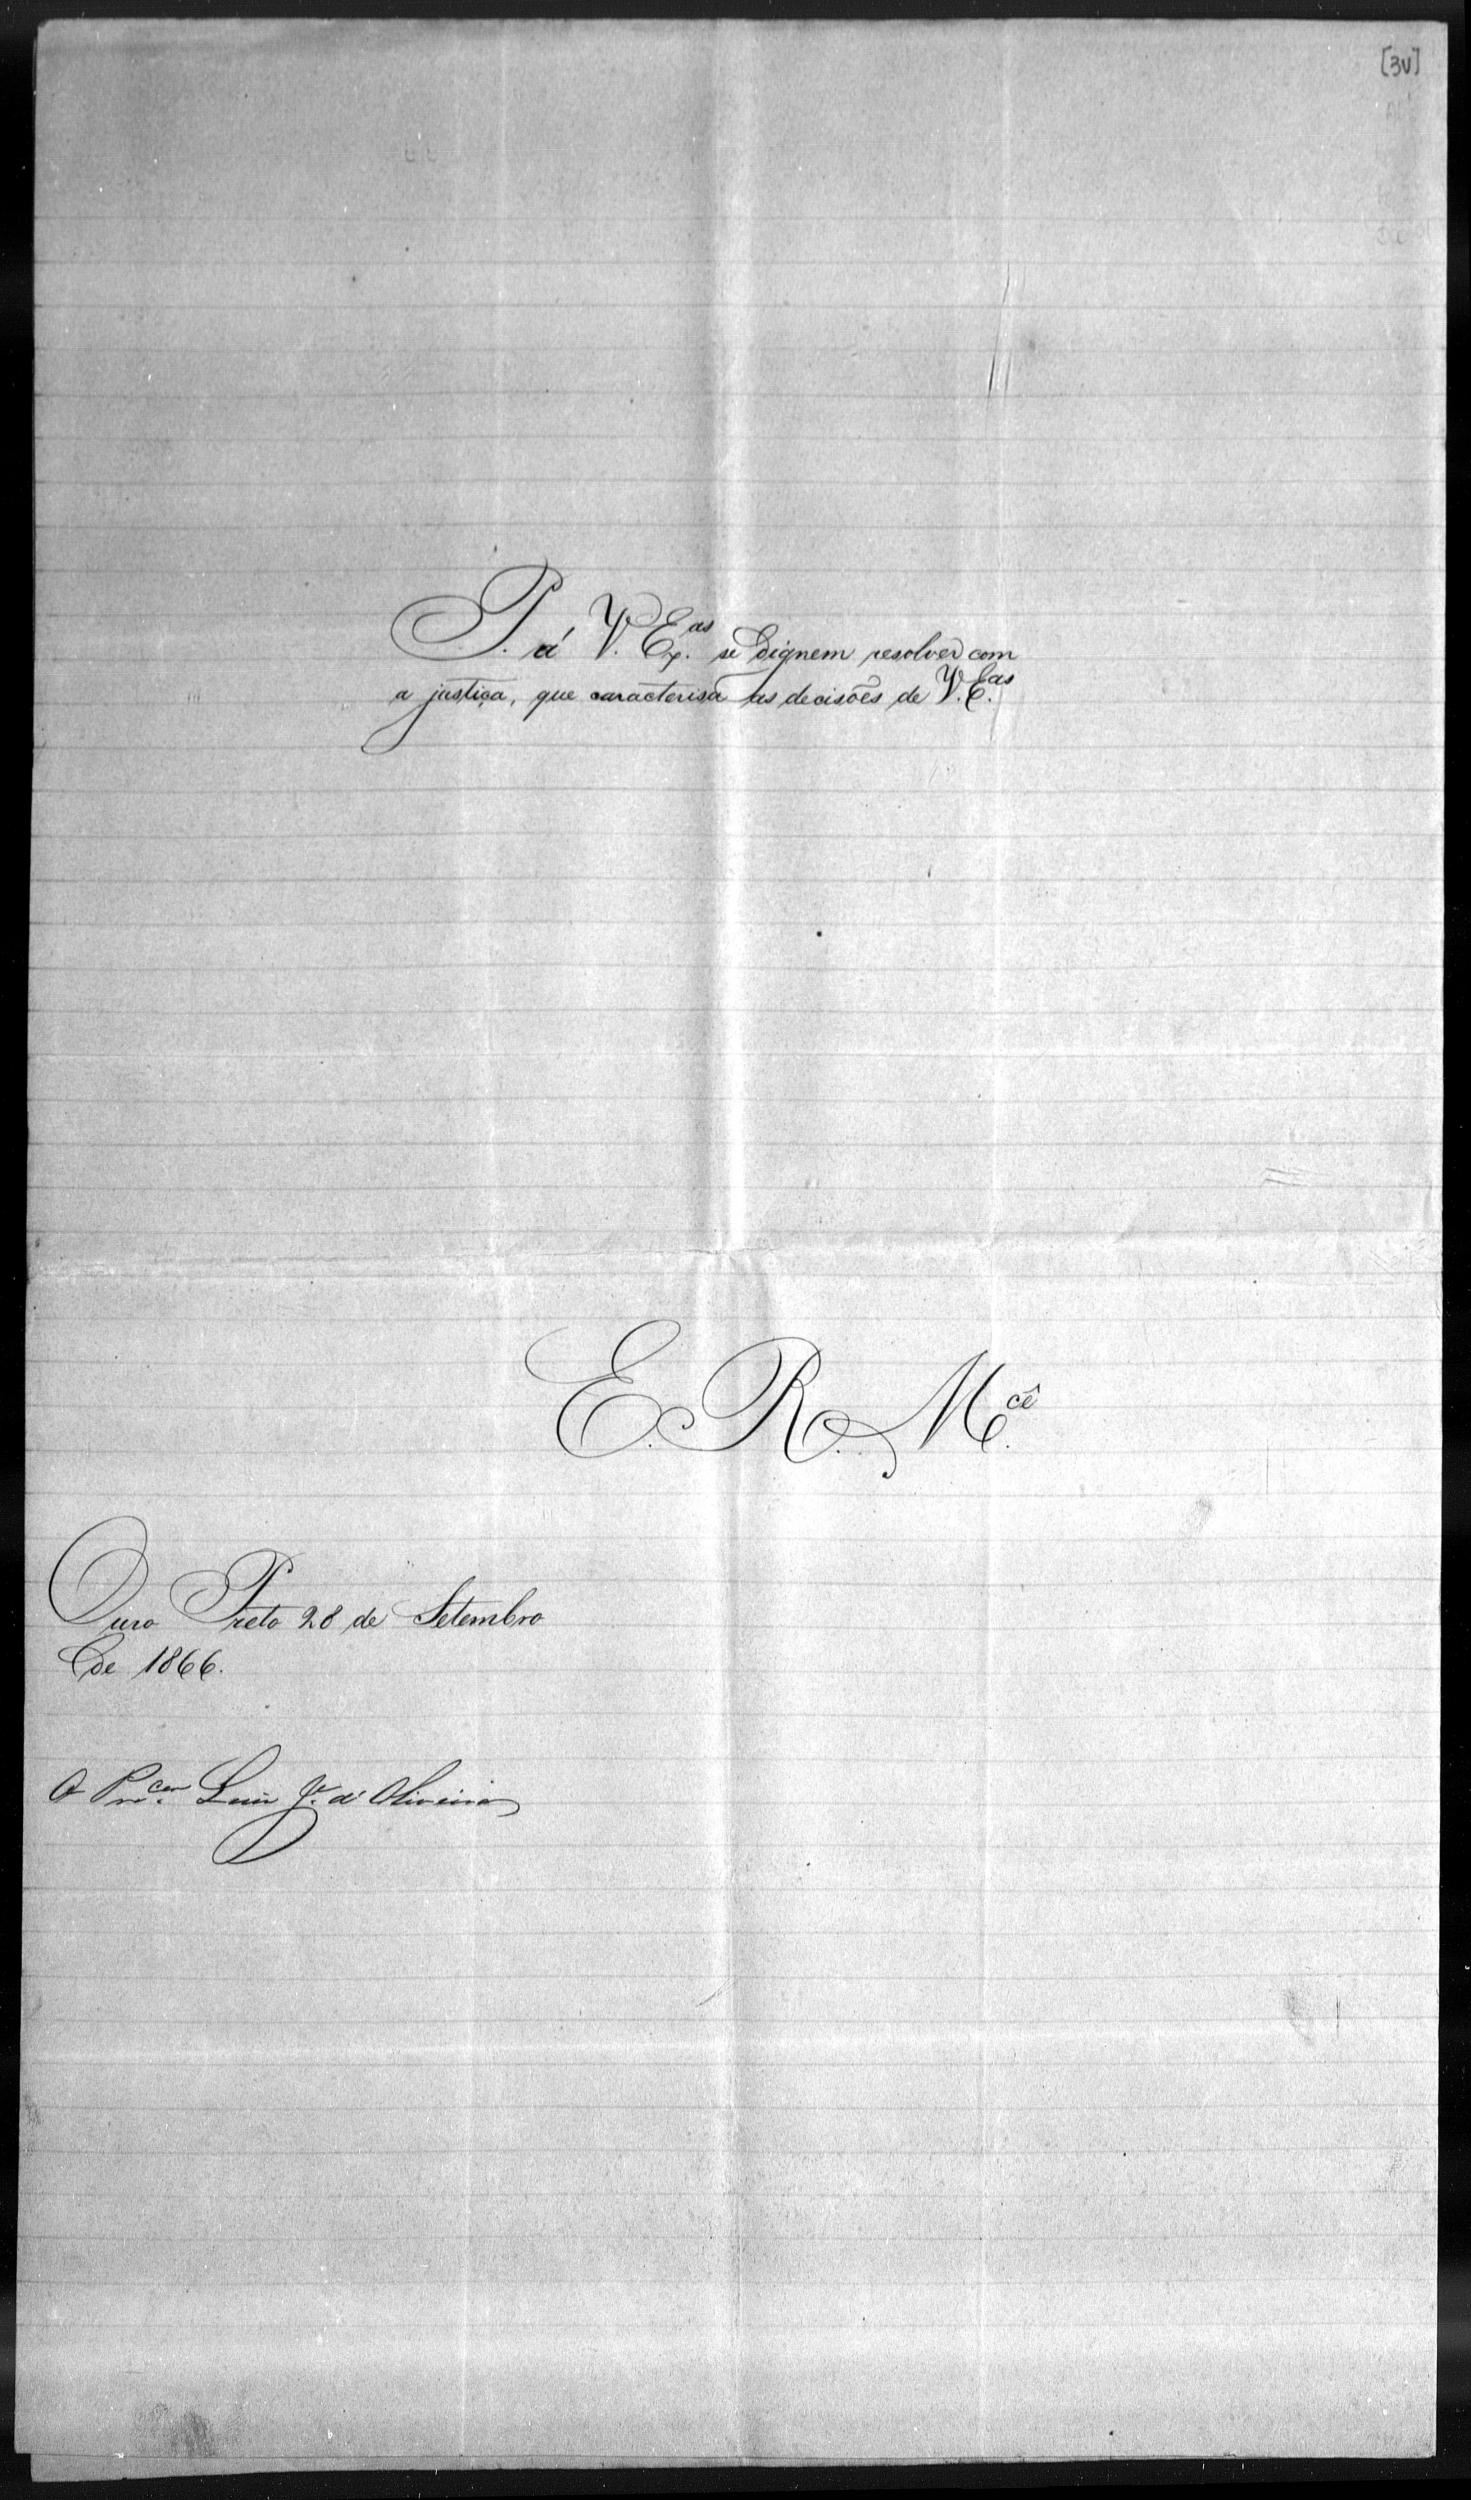 [3v]
P. á V. Ex.as se dignem resolver com
a justiça, que caracterisa as decisões de V. E.as
E. R. M.cê
Ouro Preto 28 de Setembro
de 1866.
O Pro.cor Luiz J.e d'Oliveira